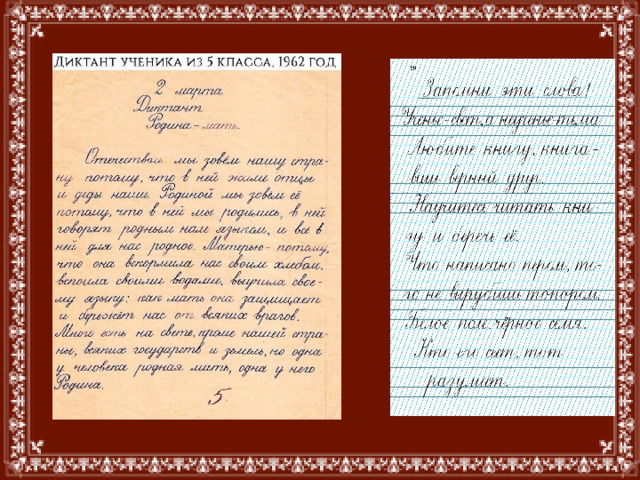 Диктант ученика из 5 класса, 1962 год
2 марта.
Диктант.
Родина - мать.
Отечеством мы зовём нашу стра-
ну потому, что в ней жили отцы
и деды наши. Родиной мы зовём её
потому, что в ней мы родились, в ней
говорят родным нам языком, и всё в
ней для нас родное. Матерью - потому,
что она вскормила нас своим хлебом,
вспоила своими водами, выучила свое-
му языку; как мать она защищает
и бережёт нас от всяких врагов.
Много есть на свете, кроме нашей стра-
ны, всяких государств и земель, но одна
у человека родная мать, одна у него
Родина.
5.
Запомни эти слова!
Ученье-свет, а неученье тьма.
Любите книгу, книга -
ваш верный друг.
Научитесь читать кни
гу и беречь её.
Что написано пером, то-
го не вырубишь топором.
Белое поле, чёрное семя.
Кто его сеет, тот
разумеет.